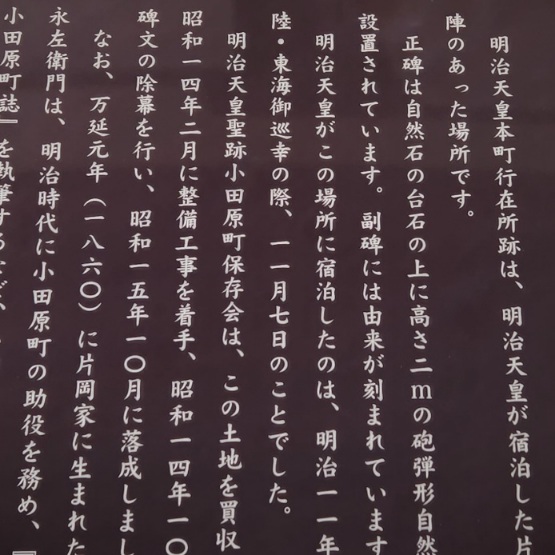 明治天皇本町行在所跡は、明治天皇が宿泊した片
陣のあった場所です。
正碑は自然石の台石の上に高さ二mの砲弾形自然
設置されています。副碑には由来が刻まれています
明治天皇がこの場所に宿泊したのは、明治一一年
陸・東海御巡幸の際、一一月七日のことでした。
明治天皇聖跡小田原町保存会は、この土地を買収
昭和一四年二月に整備工事を着手、昭和一四年一〇
碑文の除幕を行い、昭和一五年一〇月に落成しまし
なお、万延元年（一八六〇）に片岡家に生まれた
永左衛門は、明治時代に小田原町の助役を務め、『
小田原町誌』を執筆する